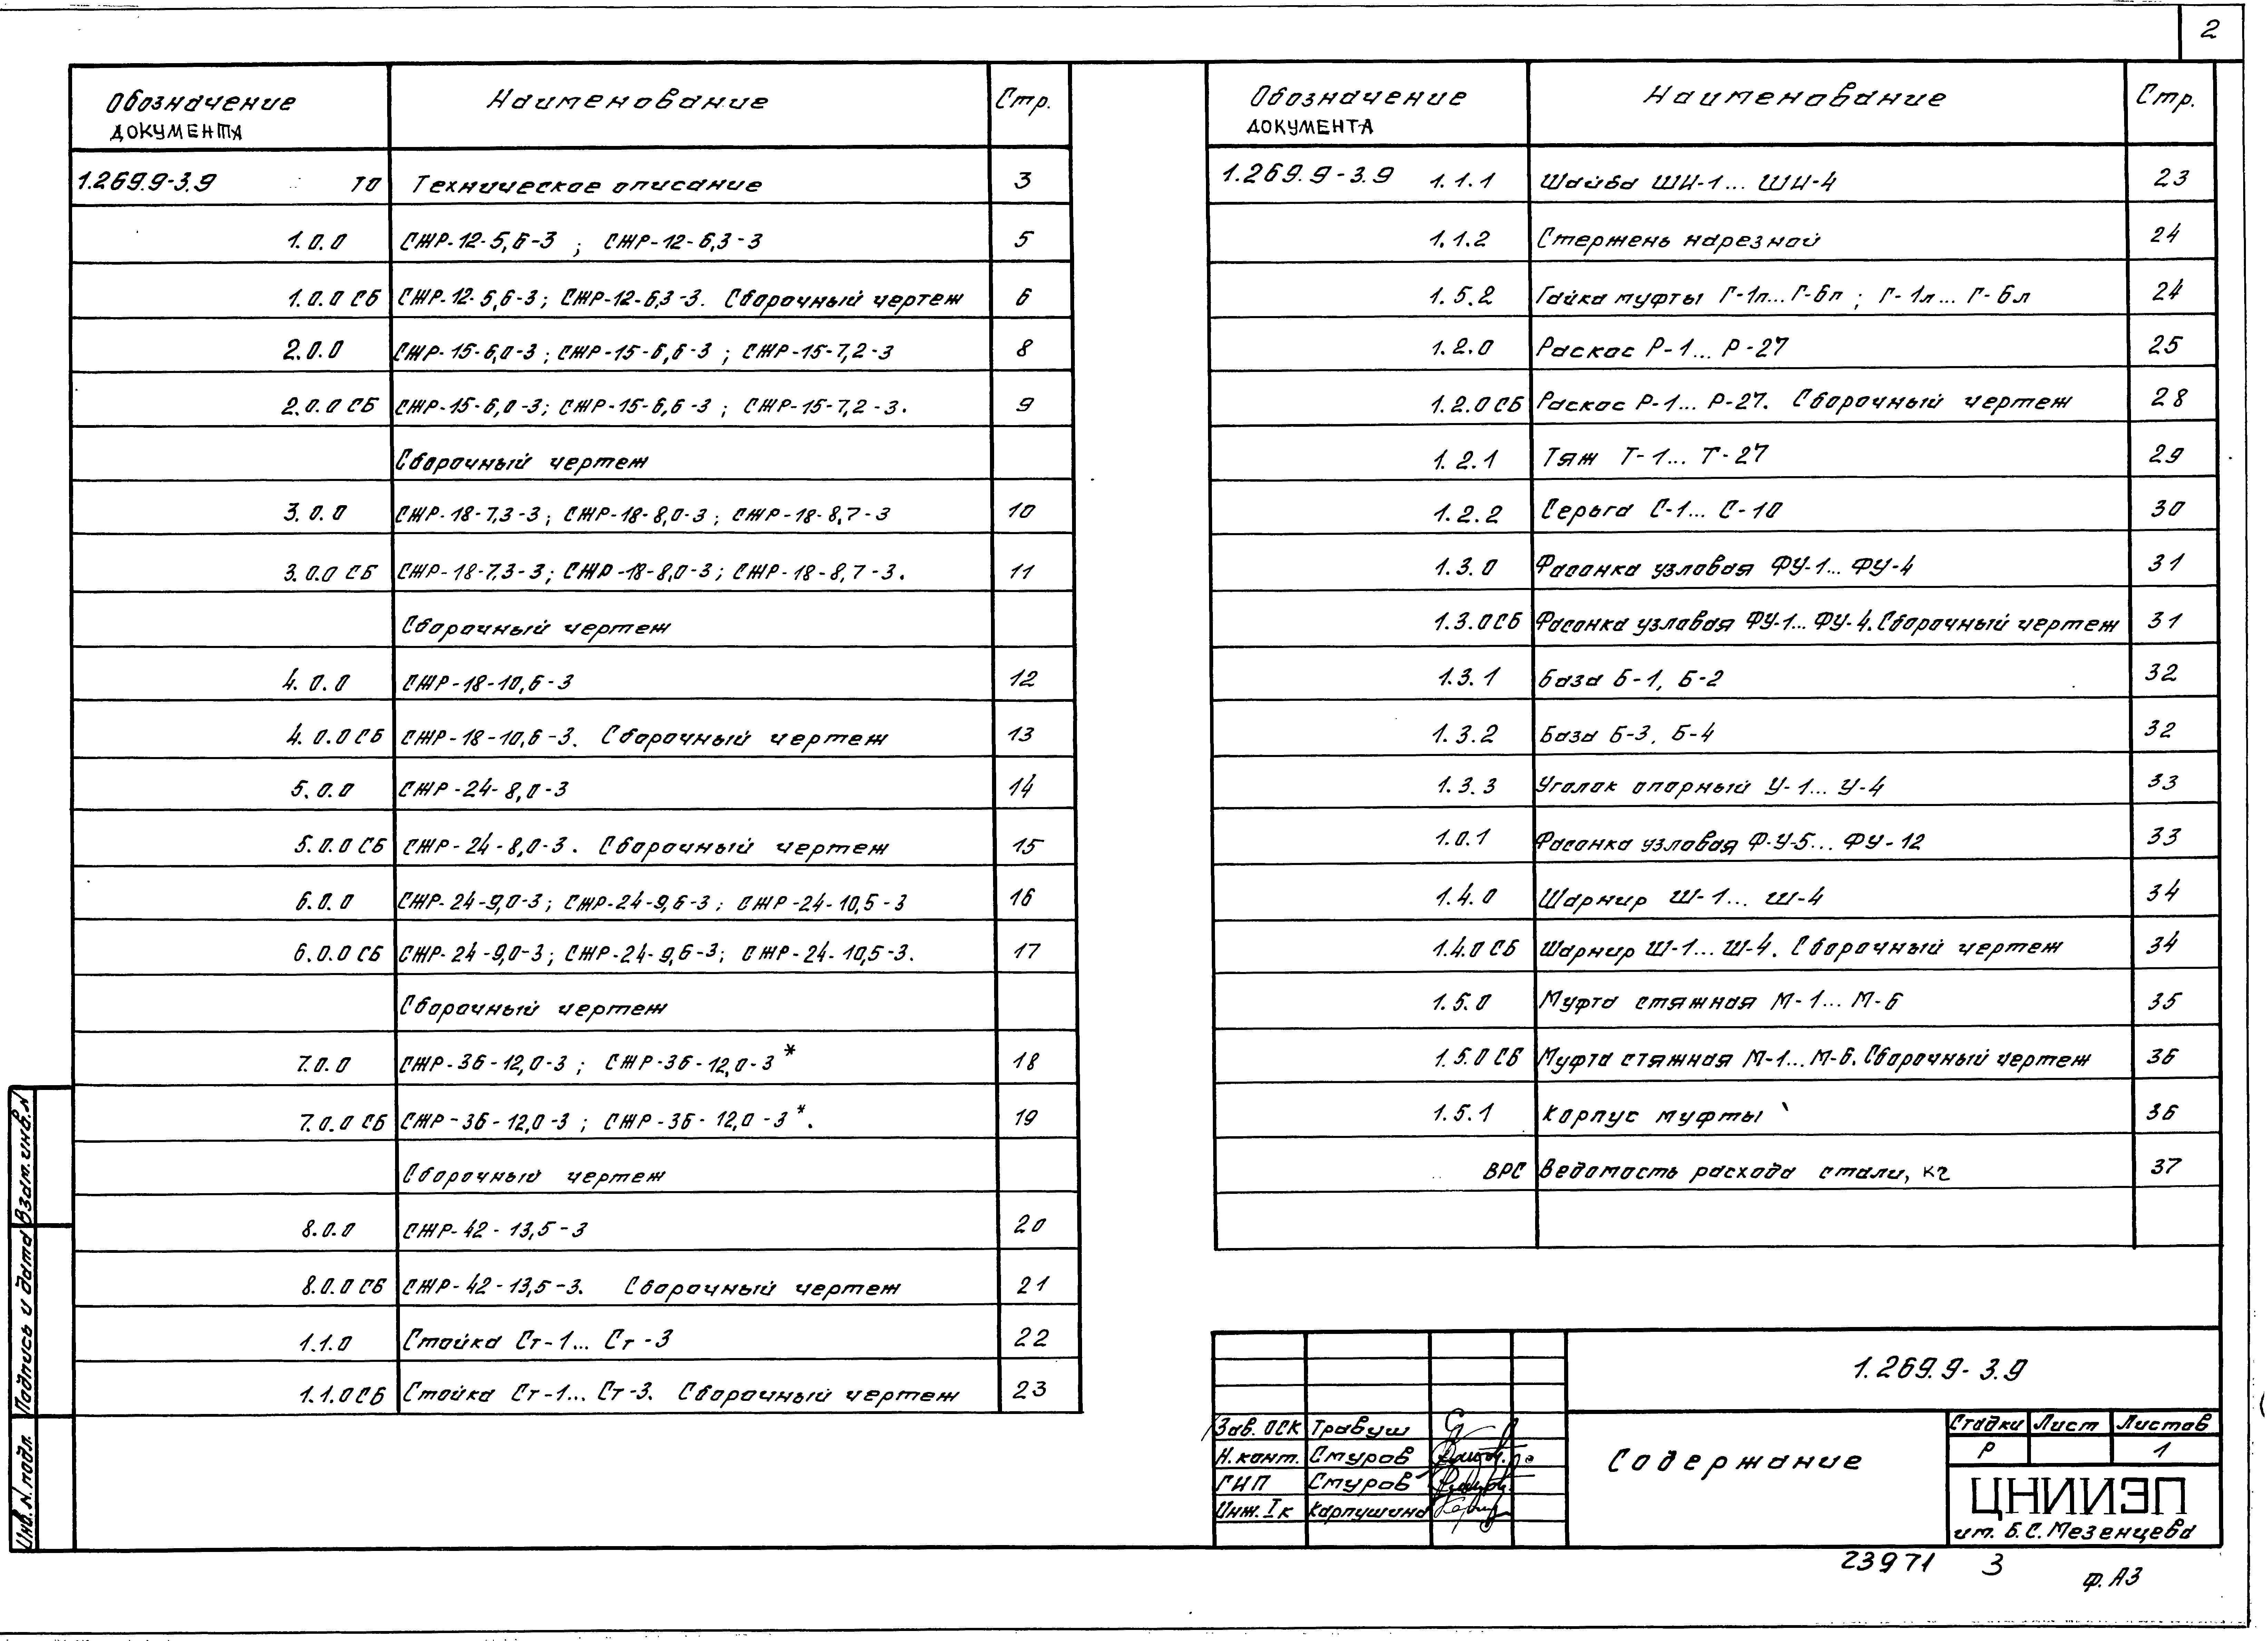 2
Обозначение документа Наименование Стр.
1.269.9-3.9 ТО Техническое описание 3
1.0.0 СЖР-12-5,6-3 ; СЖР-12-6,3-3 5
1.0.0 СБ СЖР-12-5,6-3; СЖР-12-6,3-3. Сборочный чертеж 6
2.0.0 СЖР-15-6,0-3; СЖР-15-6,6-3 ; СЖР-15-7,2-3 8
2.0.0 СБ СЖР-15-6,0-3; СЖР-15-6,6-3 ; СЖР-15-7,2-3. 9
Сборочный чертеж
3.0.0 СЖР-18-7,3-3; СЖР-18-8,0-3; СЖР-18-8,7-3 10
3.0.0 СБ СЖР-18-7,3-3; СЖР-18-8,0-3; СЖР-18-8,7-3. 11
Сборочный чертеж
4.0.0 СЖР-18-10,6-3 12
4.0.0 СБ СЖР-18-10,6-3. Сборочный чертеж 13
5.0.0 СЖР-24-8,0-3 14
5.0.0 СБ СЖР-24-8,0-3. Сборочный чертеж 15
6.0.0 СЖР-24-9,0-3; СЖР-24-9,6-3; СЖР-24-10,5-3 16
6.0.0 СБ СЖР-24-9,0-3; СЖР-24-9,6-3; СЖР-24-10,5-3. 17
Сборочный чертеж
7.0.0 СЖР-36-12,0-3 ; СЖР-36-12,0-3* 18
7.0.0 СБ СЖР-36-12,0-3 ; СЖР-36-12,0-3*. 19
Сборочный чертеж
8.0.0 СЖР-42-13,5-3 20
8.0.0 СБ СЖР-42-13,5-3. Сборочный чертеж 21
1.1.0 Стойка Ст-1... Ст-3 22
1.1.0 СБ Стойка Ст-1... Ст-3. Сборочный чертеж 23
Обозначение документа Наименование Стр.
1.269.9-3.9 1.1.1 Шайба ШН-1... ШН-4 23
1.1.2 Стержень нарезной 24
1.5.2 Гайка муфты Г-1п...Г-6п ; Г-1л... Г-6л 24
1.2.0 Раскос Р-1... Р-27 25
1.2.0 СБ Раскос Р-1... Р-27. Сборочный чертеж 28
1.2.1 Тяж Т-1... Т-27 29
1.2.2 Серьга С-1... С-10 30
1.3.0 Фасонка узловая ФУ-1... ФУ-4 31
1.3.0 СБ Фасонка узловая ФУ-1... ФУ-4. Сборочный чертеж 31
1.3.1 База Б-1, Б-2 32
1.3.2 База Б-3, Б-4 32
1.3.3 Уголок опорный У-1... У-4 33
1.0.1 Фасонка узловая Ф-У-5... ФУ-12 33
1.4.0 Шарнир Ш-1... Ш-4 34
1.4.0 СБ Шарнир Ш-1... Ш-4. Сборочный чертеж 34
1.5.0 Муфта стяжная М-1... М-6 35
1.5.0 СБ Муфта стяжная М-1... М-6. Сборочный чертеж 36
1.5.1 Корпус муфты 36
ВРС Ведомость расхода стали, кг 37
Взам. инв. N
Подпись и дата
Инв. N подл.
1.269.9-3.9
Зав. ОСК Травуш
Н. конт. Стуров
ГИП Стуров
Инж. I к Карпушина
Содержание
Стадия Лист Листов
Р 1
ЦНИИЭП
им. Б.С. Мезенцева
23971 3
Ф. А3